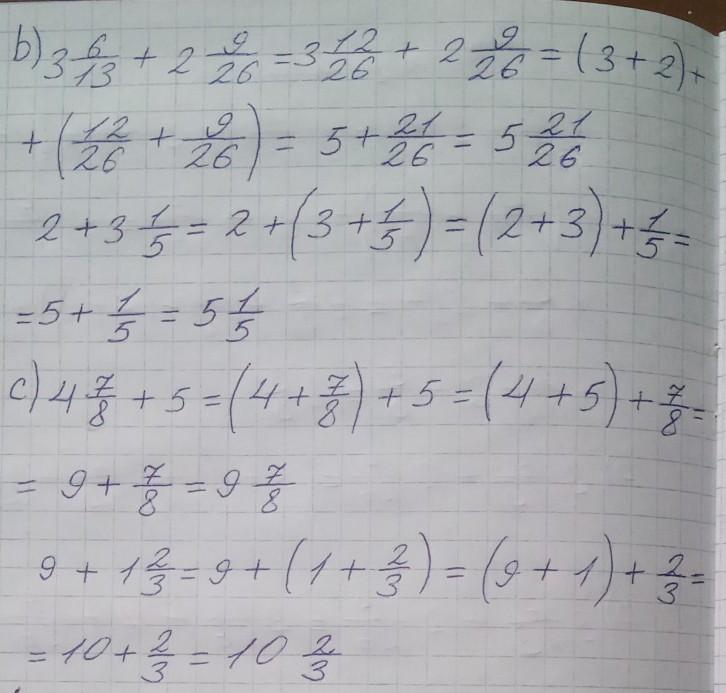 b) 3 6/13 + 2 9/26 = 3 12/26 + 2 9/26 = (3 + 2) +
+ (12/26 + 9/26) = 5 + 21/26 = 5 21/26
2 + 3 1/5 = 2 + (3 + 1/5) = (2 + 3) + 1/5 =
= 5 + 1/5 = 5 1/5
c) 4 7/8 + 5 = (4 + 7/8) + 5 = (4 + 5) + 7/8 =
= 9 + 7/8 = 9 7/8
9 + 1 2/3 = 9 + (1 + 2/3) = (9 + 1) + 2/3 =
= 10 + 2/3 = 10 2/3